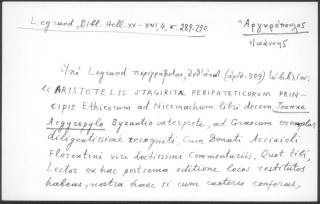 Legrand, Bibl. Hell. XV-XVI, 4, σ. 289-290.
Ἀργυρόπουλος
Ἰωάννης
Ὑπὸ Legrand περιγράφεται, (ἀριθ. 809) τὸ βιβλίον:
« ARISTOTELIS STAGIRITÆ PERIPATETICORUM PRIN-
cipis Ethicorum ad Nicomachum libri decem, Joanne
Argyropylo Byzantio interprete, ad Graecum exemplar
diligentissimè recogniti, Cum Donati Acciaioli
Florentini viri doctissimi Commentariis, Quot tibi,
Lector ex hac postrema editione locos restitutos
habeas, nostra haec si cum caeteris conferas,